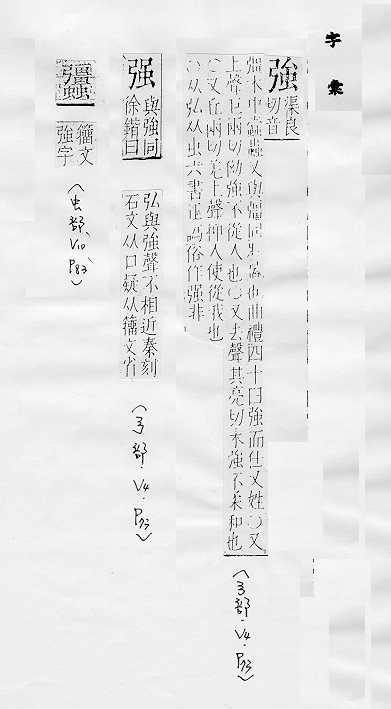 字彙
強
渠良切音
彊米中蠧蟲又與彊同
曲禮四十曰強而仕又姓○又
上聲巨兩切勉強不從人也○又去聲其亮切木強不柔和也
○又丘兩切羌上聲抑人使從我也
○从弘从虫六書正譌俗作强非
(弓部.V4.P73)
强
與強同徐鍇曰
弘與強聲不相近秦刻
石文从口疑从籀文省
(弓部.V4.P73)
籀文
強字
(虫部.V10.P83)